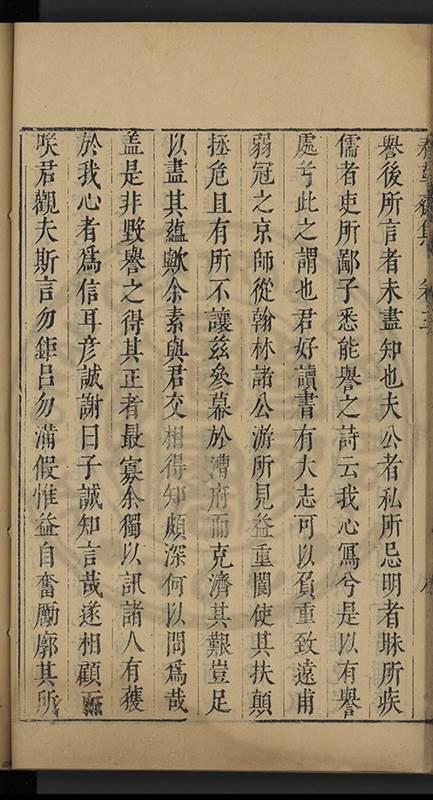 譽後所言者未盡知也夫公者私所忌明者昧所疾
儒者吏所鄙子悉能譽之詩云我心寫兮是以有譽
處兮此之謂也君好讀書有大志可以負重致遠甫
弱冠之京師從翰林諸公游所見益重閫使其扶顛
拯危且有所不讓茲參幕於漕府而克濟其艱豈足
以盡其蘊歟余素與君交相得知頗深何以問為哉
盖是非毀譽之得其正者最寡余獨以訊諸人有獲
於我心者為信耳彥誠謝曰子誠知言哉遂相顧而
咲君觀夫斯言勿鉅呂勿滿假惟益自奮勵廓其所